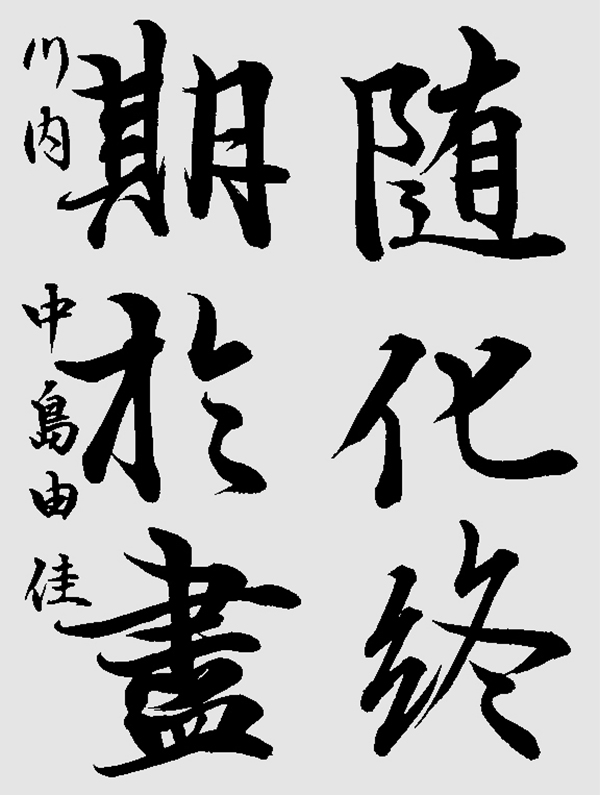 随化終
期於盡
川内 中島由佳